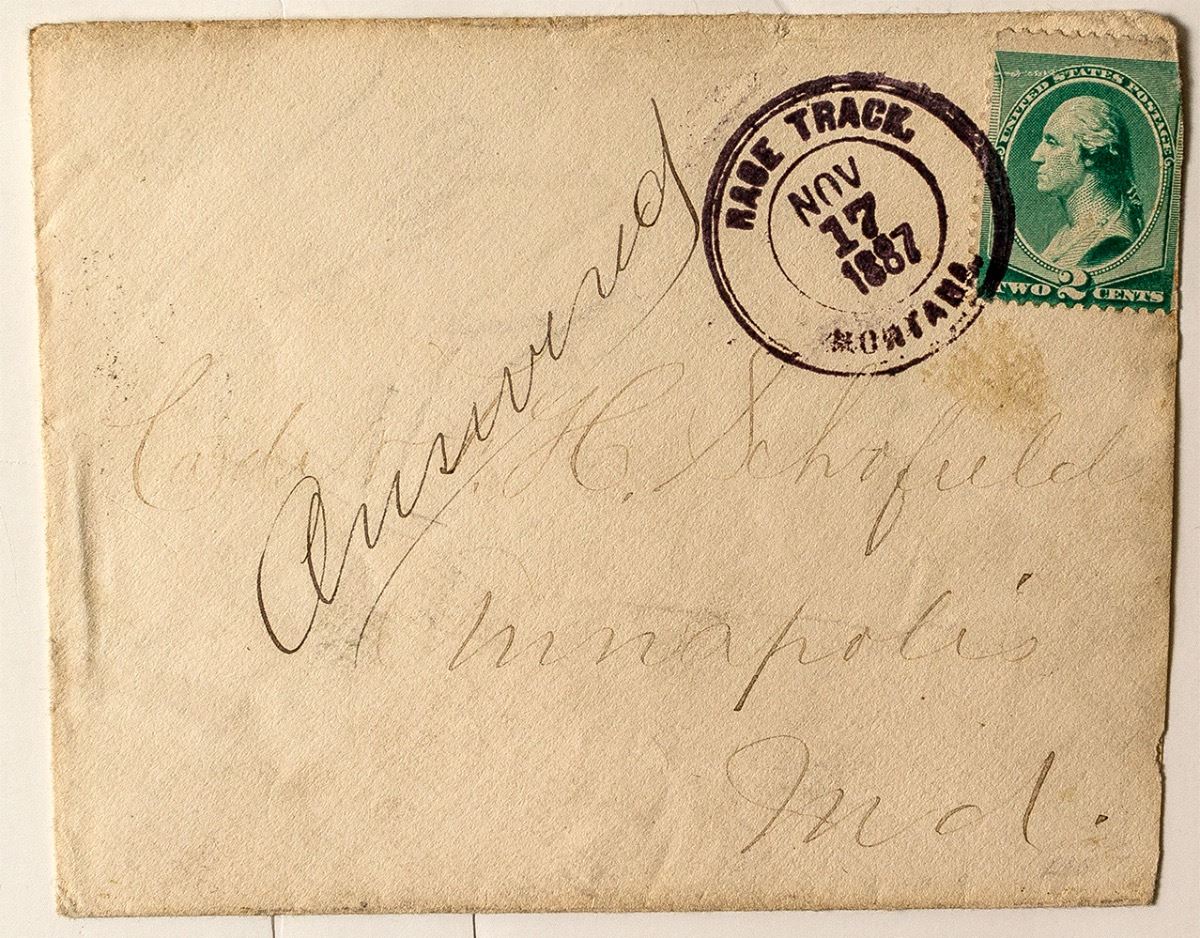 RACE TRACK.
NOV
17
1887
MONTANA.
UNITED STATES POSTAGE
TWO 2 CENTS
Answered
H. Schofield
Annapolis
Md.